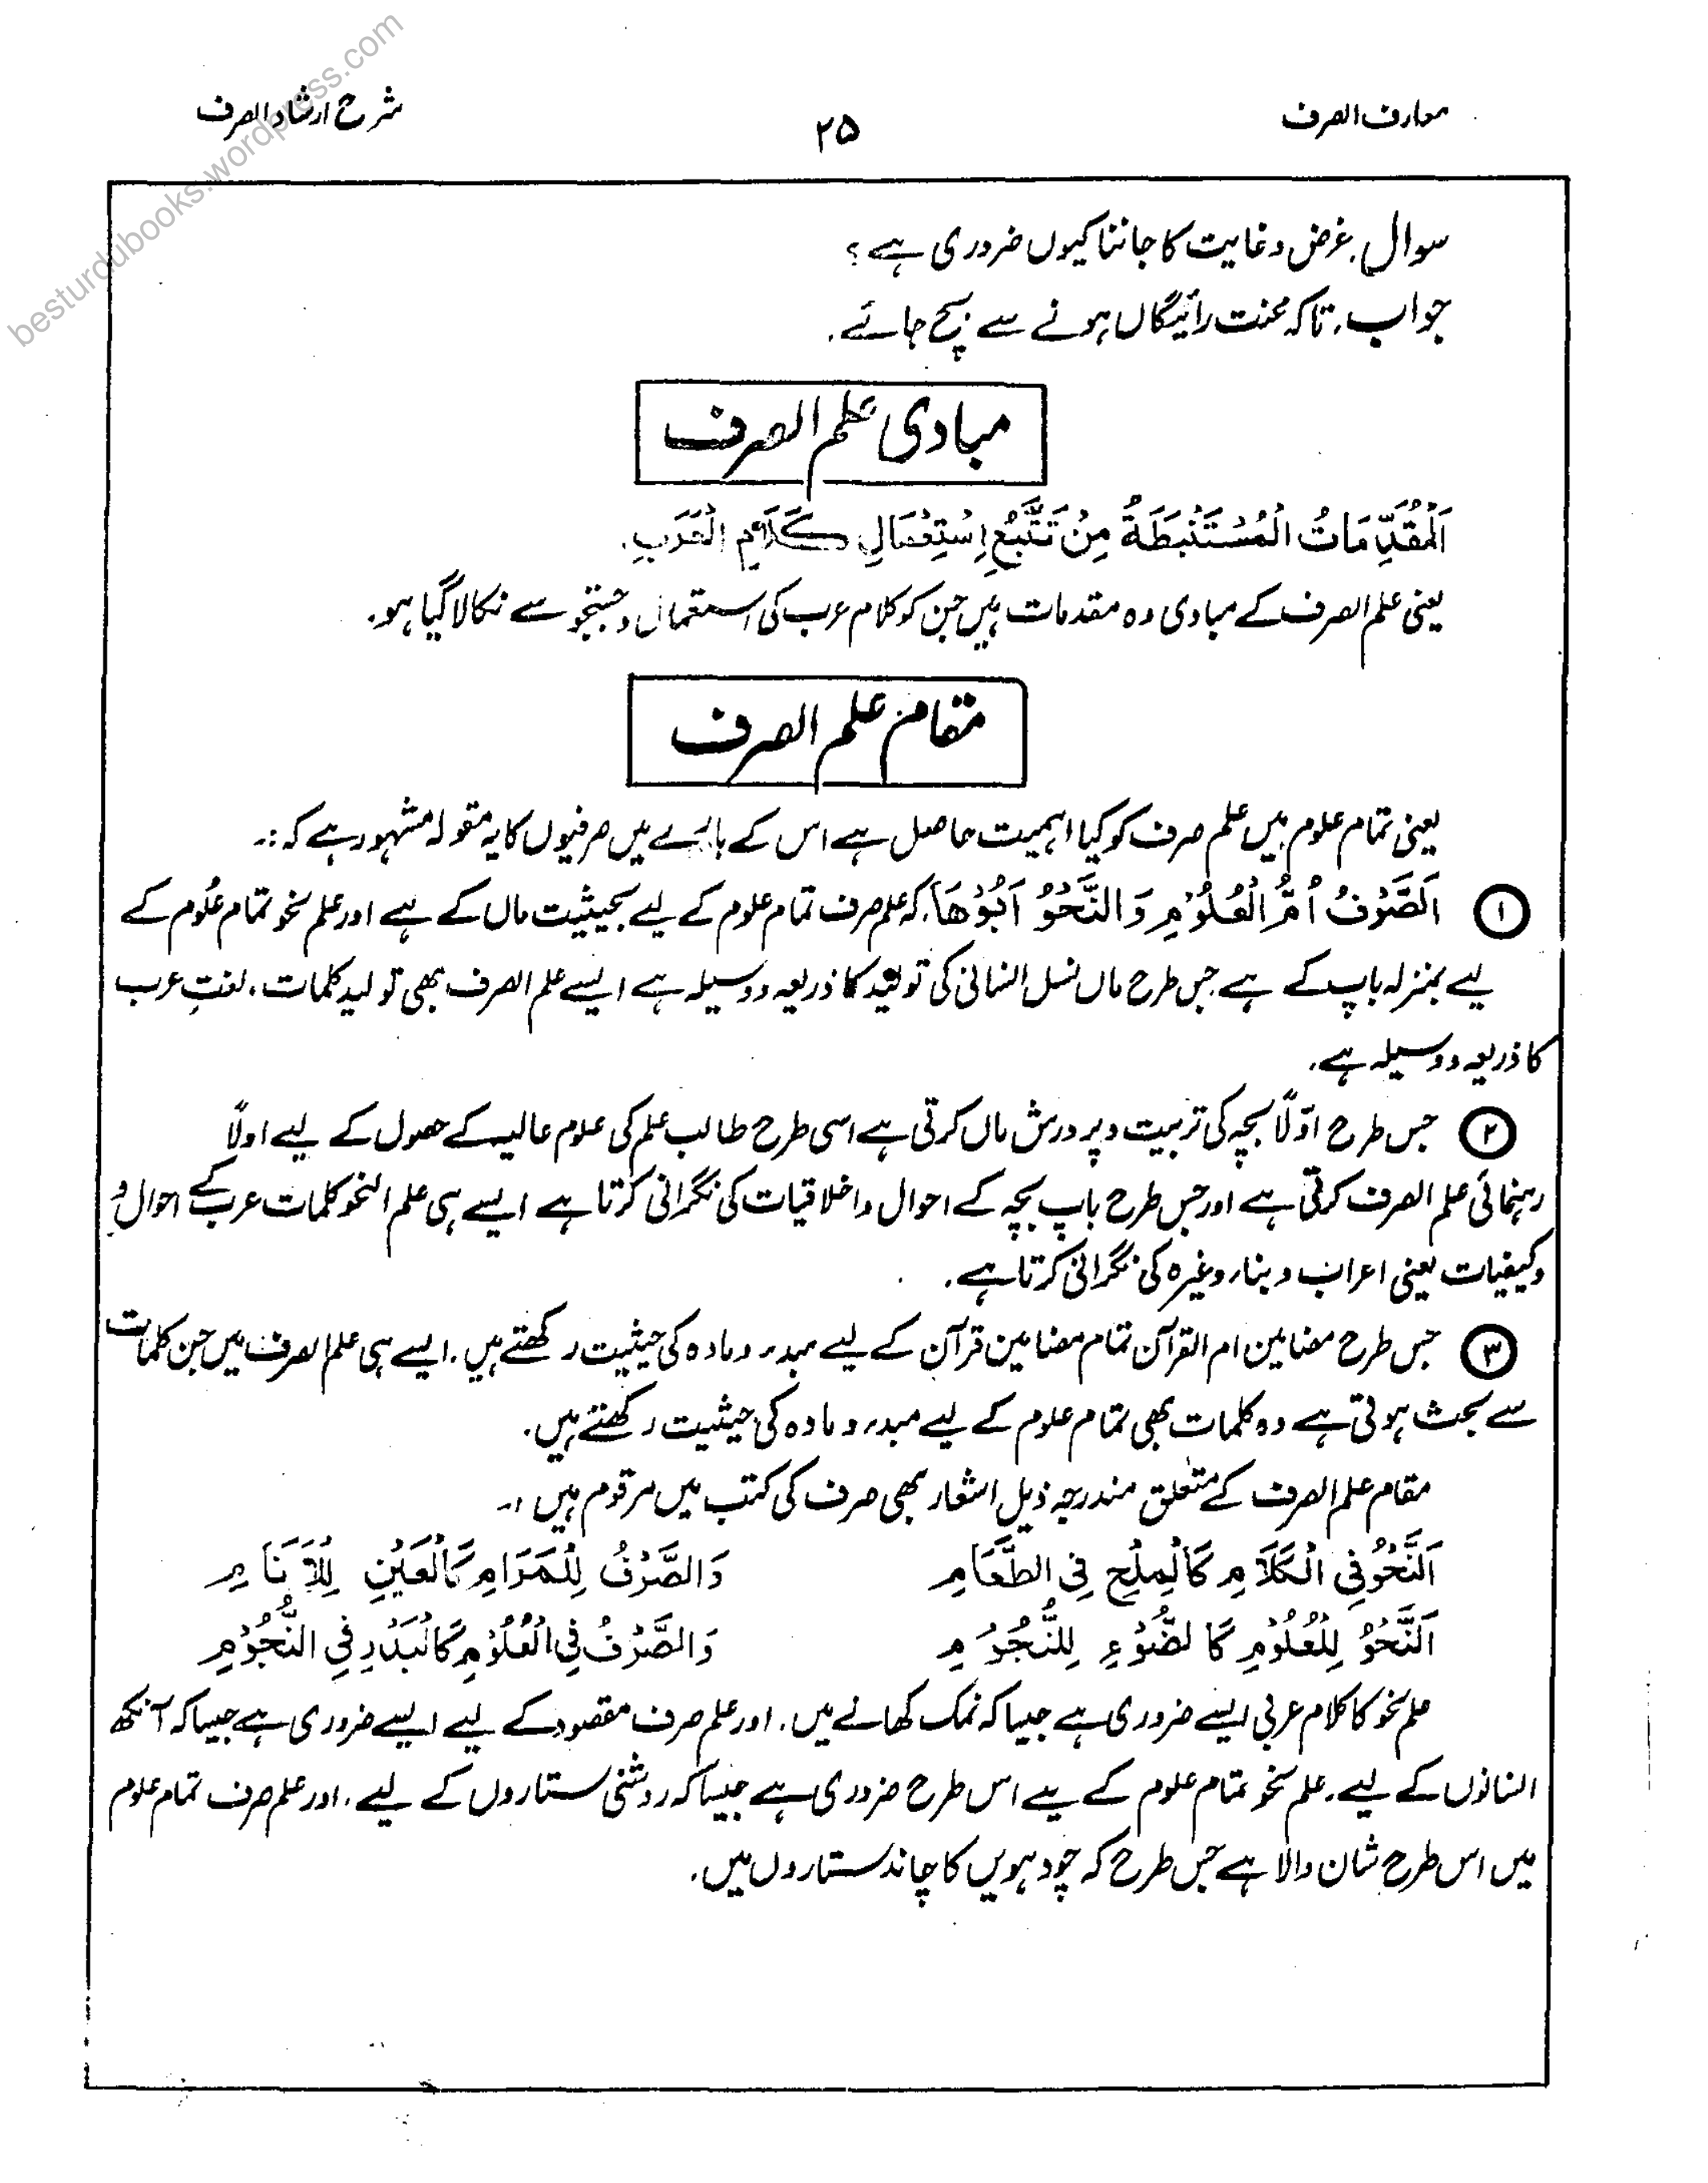 معارف الصرف
۲۵
شرح ارشاد الصرف
besturdubooks.wordpress.com
سوال۔ غرض و غایت کا جاننا کیوں ضروری ہے؟
جواب۔ تاکہ محنت رائیگاں ہونے سے بچ جائے۔
مبادی علم الصرف
اَلْمُقَدِّمَاتُ الْمُسْتَنْبَطَةُ مِنْ تَتَّبُعِ اِسْتِعْمَالِ كَلَامِ الْعَرَبِ۔
یعنی علم الصرف کے مبادی وہ مقدمات ہیں جن کو کلام عرب کی استعمال و جستجو سے نکالا گیا ہو۔
مقام علم الصرف
یعنی تمام علوم میں علم صرف کو کیا اہمیت حاصل ہے اس کے بارے میں صرفیوں کا یہ مقولہ مشہور ہے کہ :۔
① اَلصَّرْفُ اُمُّ الْعُلُوْمِ وَالنَّحْوُ اَبُوْهَا۔ کہ علم صرف تمام علوم کے لیے بحیثیت ماں کے ہے اور علم نحو تمام علوم کے
لیے بمنزلہ باپ کے ہے جس طرح ماں نسل انسانی کی تولید کا ذریعہ و وسیلہ ہے ایسے علم الصرف بھی تولید کلمات، لغتِ عرب
کا ذریعہ و وسیلہ ہے۔
② جس طرح اوّلاً بچہ کی تربیت و پرورش ماں کرتی ہے اسی طرح طالب علم کی علوم عالیہ کے حصول کے لیے اولاً
رہنمائی علم الصرف کرتی ہے اور جس طرح باپ بچہ کے احوال و اخلاقیات کی نگرانی کرتا ہے ایسے ہی علم النحو کلمات عرب کے احوال و
وکیفیات یعنی اعراب و بناء وغیرہ کی نگرانی کرتا ہے۔
③ جس طرح مضامین ام القرآن تمام مضامین قرآن کے لیے مبدء و مادہ کی حیثیت رکھتے ہیں۔ ایسے ہی علم الصرف میں جن کلمات
سے بحث ہوتی ہے وہ کلمات بھی تمام علوم کے لیے مبدء و مادہ کی حیثیت رکھتے ہیں۔
مقام علم الصرف کے متعلق مندرجہ ذیل اشعار بھی صرف کی کتب میں مرقوم ہیں :۔
اَلنَّحْوُ فِى الْكَلَامِ كَالْمِلْحِ فِى الطَّعَامِ وَالصَّرْفُ لِلْمَرَامِ كَالْعَيْنِ لِلْاَنَامِ
اَلنَّحْوُ لِلْعُلُوْمِ كَالضَّوْءِ لِلنُّجُوْمِ وَالصَّرْفُ فِى الْعُلُوْمِ كَالْبَدْرِ فِى النُّجُوْمِ
علم نحو کا کلام عربی ایسے ضروری ہے جیسا کہ نمک کھانے میں۔ اور علم صرف مقصود کے لیے ایسے ضروری ہے جیسا کہ آنکھ
انسانوں کے لیے۔ علم نحو تمام علوم کے لیے اس طرح ضروری ہے جیسا کہ روشنی ستاروں کے لیے۔ اور علم صرف تمام علوم
میں اس طرح شان والا ہے جس طرح کہ چودہویں کا چاند ستاروں میں۔